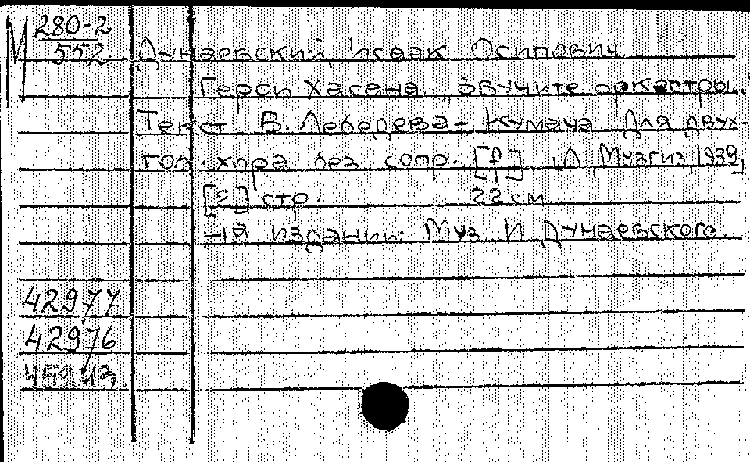 М 280-2
552
Дунаевский, Исаак Осипович
Герои Хасана. Звучите оркестры.
Текст В. Лебедева-Кумача Для двух-
гол. хора без сопр. [Р] Л Музгиз 1939
стр. 22 см
На издании: Муз. И Дунаевского.
42977
42976